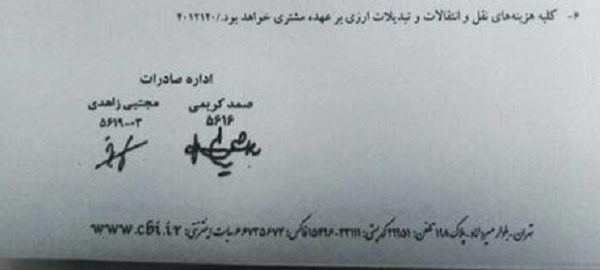 ۶- کلیه هزینه‌های نقل و انتقالات و تبدیلات ارزی بر عهده مشتری خواهد بود./۴۰۱۲۱۲۰
اداره صادرات
صمد کریمی مجتبی زاهدی
۵۶۱۶ ۵۶۱۹-۰۳
تهران - بلوار میرداماد، پلاک ۱۹۸ تلفن: ۲۹۹۵۱ کدپستی: ۳۳۱۱۱-۱۵۴۹۶ فاکس: ۶۶۷۳۵۶۷۴ سایت اینترنتی: www.cbi.ir